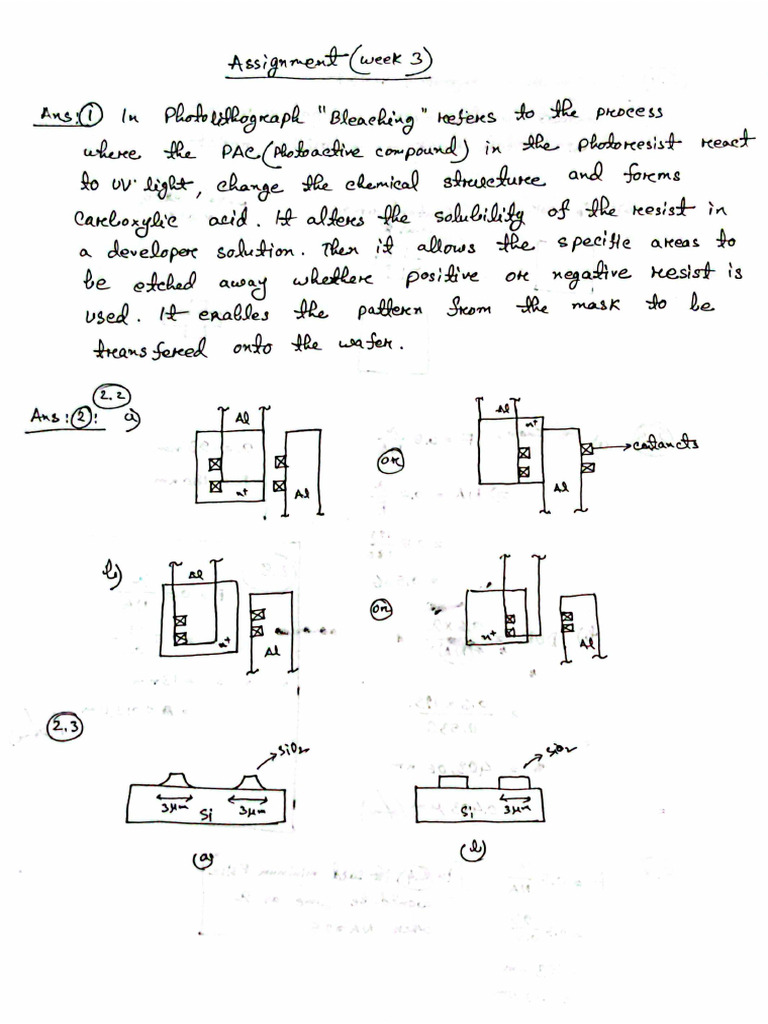 Assignment (week 3)
Ans: 1 In Photolithograph "Bleaching" refers to the process
where the PAC (Photoactive compound) in the photoresist react
to UV light, change the chemical structure and forms
carboxylic acid. It alters the solubility of the resist in
a developer solution. Then it allows the specific areas to
be etched away whether positive or negative resist is
used. It enables the pattern from the mask to be
transfered onto the wafer.
2.2
Ans: 2: a)
Al
n+
Al
OR
Al
n+
Al
contancts
b)
Al
n+
Al
OR
n+
Al
2.3
SiO2
3μm
Si
3μm
(a)
SiO2
Si
3μm
(b)